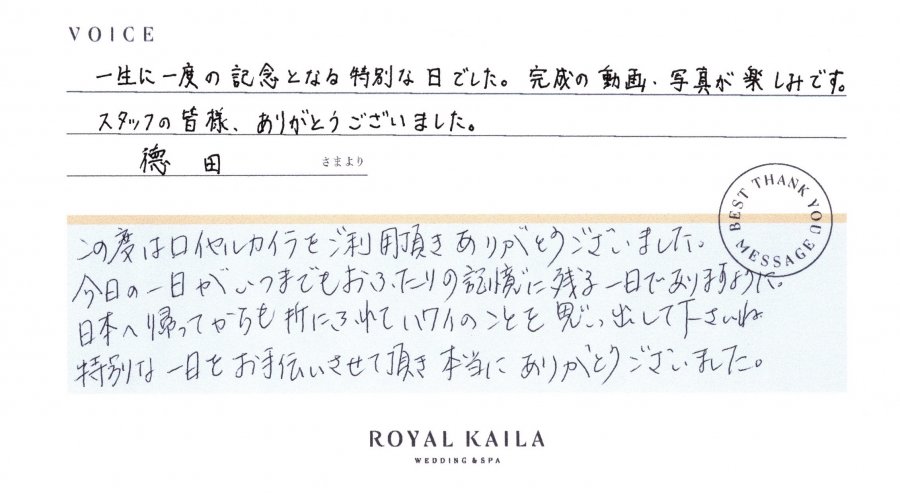 VOICE
一生に一度の記念となる特別な日でした。完成の動画、写真が楽しみです。
スタッフの皆様、ありがとうございました。
德田 さまより
BEST THANK YOU MESSAGE
この度はロイヤルカイラをご利用頂きありがとうございました。
今日の一日がいつまでもおふたりの記憶に残る一日でありますように。
日本へ帰ってからも折にふれてハワイのことを思い出して下さいね
特別な一日をお手伝いさせて頂き本当にありがとうございました。
ROYAL KAILA
WEDDING & SPA